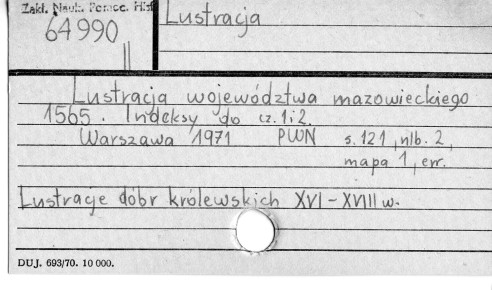 Zakł. Nauk. Pomoc. Hist
64990
Lustracja
Lustracja województwa mazowieckiego
1565. Indeksy do cz. 1i2.
Warszawa 1971 PWN s. 121, nlb. 2,
mapa 1, err.
Lustracje dóbr królewskich XVI - XVIII w.
DUJ. 693/70. 10 000.